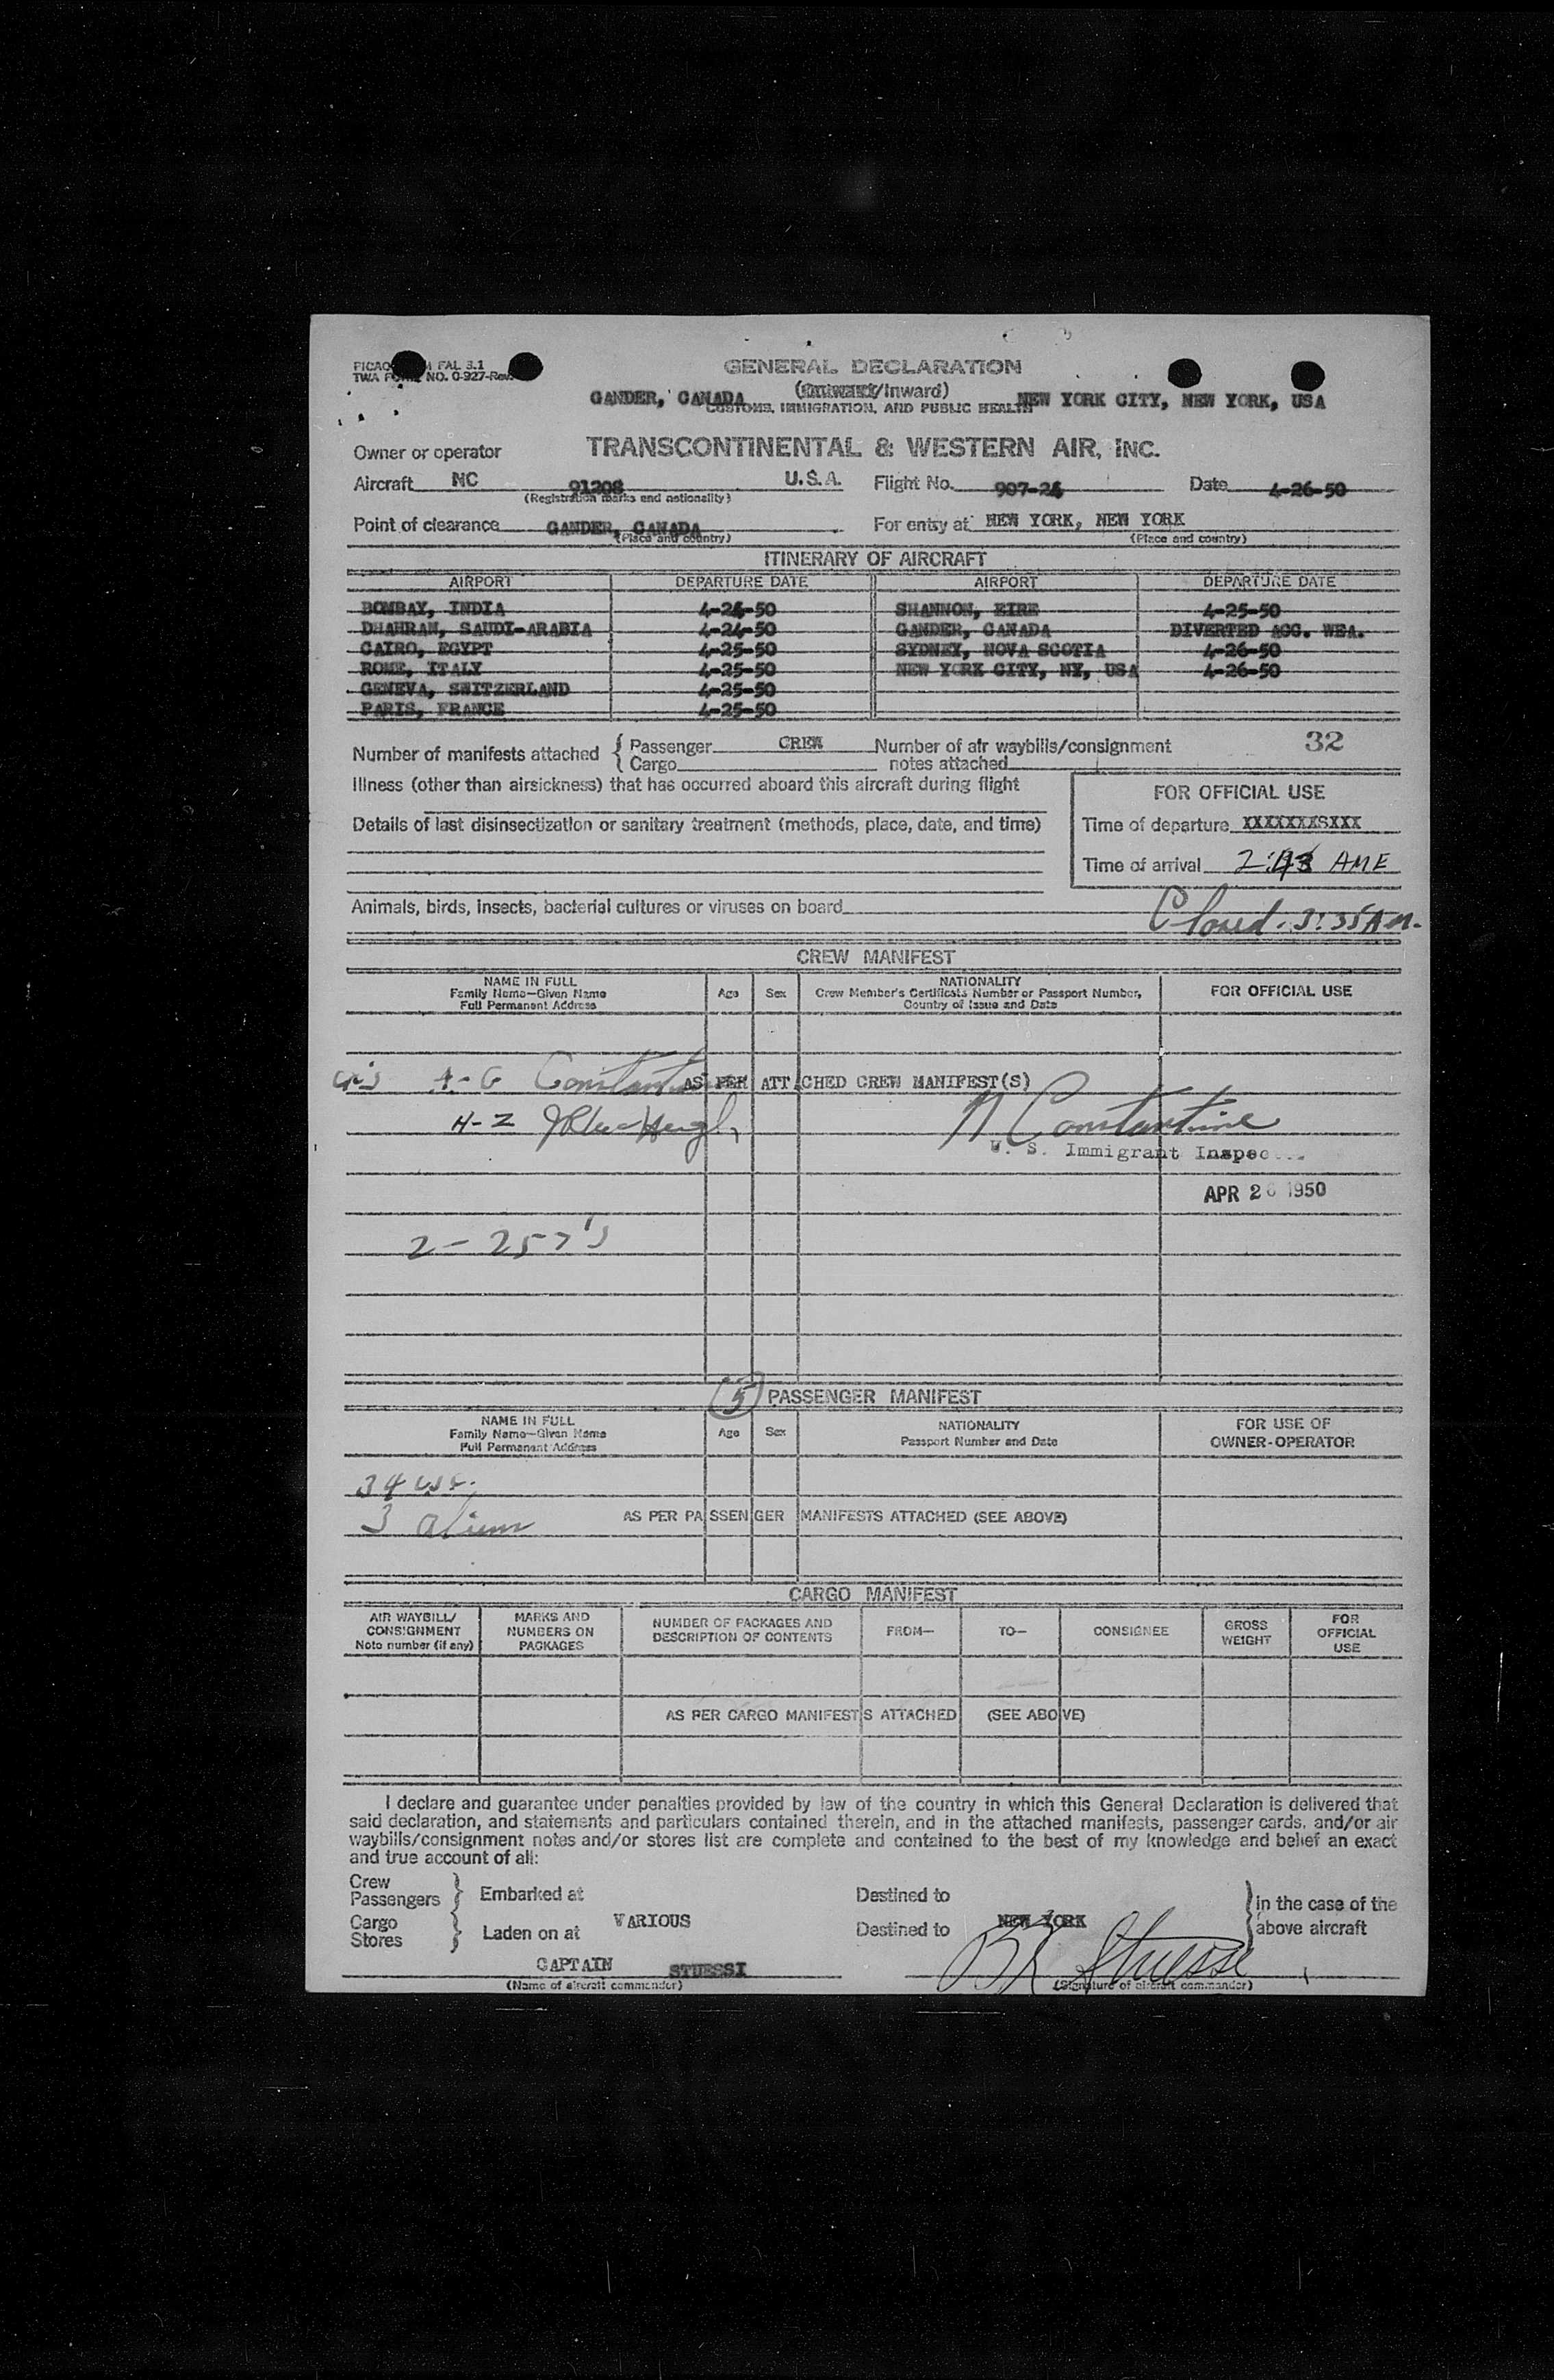 GENERAL DECLARATION
(Outward/Inward)
GANDER, CANADA NEW YORK CITY, NEW YORK, USA
CUSTOMS, IMMIGRATION, AND PUBLIC HEALTH
FAL 3.1
TWA NO. O-927-Rev.
Owner or operator TRANSCONTINENTAL & WESTERN AIR, INC.
Aircraft NC 91208 U.S.A. Flight No. 907-24 Date 4-26-50
(Registration marks and nationality)
Point of clearance GANDER, CANADA For entry at NEW YORK, NEW YORK
(Place and country) (Place and country)
ITINERARY OF AIRCRAFT
AIRPORT DEPARTURE DATE AIRPORT DEPARTURE DATE
BOMBAY, INDIA 4-24-50 SHANNON, EIRE 4-25-50
DHAHRAN, SAUDI-ARABIA 4-24-50 GANDER, CANADA DIVERTED ACC. WEA.
CAIRO, EGYPT 4-25-50 SYDNEY, NOVA SCOTIA 4-26-50
ROME, ITALY 4-25-50 NEW YORK CITY, NY, USA 4-26-50
GENEVA, SWITZERLAND 4-25-50
PARIS, FRANCE 4-25-50
Number of manifests attached { Passenger CREW Number of air waybills/consignment 32
{ Cargo notes attached
Illness (other than airsickness) that has occurred aboard this aircraft during flight
FOR OFFICIAL USE
Details of last disinsectization or sanitary treatment (methods, place, date, and time)
Time of departure XXXXXXXSXXX
Time of arrival 2:43 AME
Animals, birds, insects, bacterial cultures or viruses on board
Closed. 3:35 AM.
CREW MANIFEST
NAME IN FULL
Family Name—Given Name
Full Permanent Address
Age Sex
NATIONALITY
Crew Member's Certificate Number or Passport Number,
Country of Issue and Date
FOR OFFICIAL USE
A-G Constantine AS PER ATTACHED CREW MANIFEST(S)
H-Z
N Constantine
U. S. Immigrant Inspec
APR 26 1950
2 - 257's
(5) PASSENGER MANIFEST
NAME IN FULL
Family Name—Given Name
Full Permanent Address
Age Sex
NATIONALITY
Passport Number and Date
FOR USE OF
OWNER-OPERATOR
34 usc.
3 aliens AS PER PASSENGER MANIFESTS ATTACHED (SEE ABOVE)
CARGO MANIFEST
AIR WAYBILL/
CONSIGNMENT
Note number (if any)
MARKS AND
NUMBERS ON
PACKAGES
NUMBER OF PACKAGES AND
DESCRIPTION OF CONTENTS
FROM—
TO—
CONSIGNEE
GROSS
WEIGHT
FOR
OFFICIAL
USE
AS PER CARGO MANIFESTS ATTACHED (SEE ABOVE)
I declare and guarantee under penalties provided by law of the country in which this General Declaration is delivered that
said declaration, and statements and particulars contained therein, and in the attached manifests, passenger cards, and/or air
waybills/consignment notes and/or stores list are complete and contained to the best of my knowledge and belief an exact
and true account of all:
Crew
Passengers } Embarked at Destined to
Cargo
Stores } Laden on at VARIOUS Destined to NEW YORK
in the case of the
above aircraft
CAPTAIN STUESSI BR Stuessi
(Name of aircraft commander) (Signature of aircraft commander)